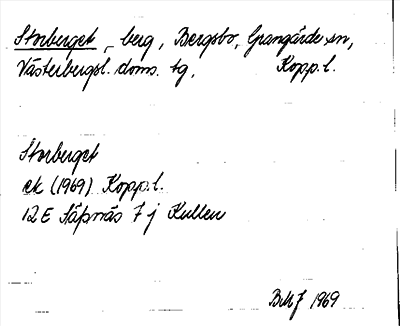 Storberget, berg, Bergsbo, Grangärde sn,
Västerbergsl. doms. tg, Kopp.l.
Storberget
ek (1969) Kopp.l.
12E Säfsnäs 7j Kullen
BMJ 1969